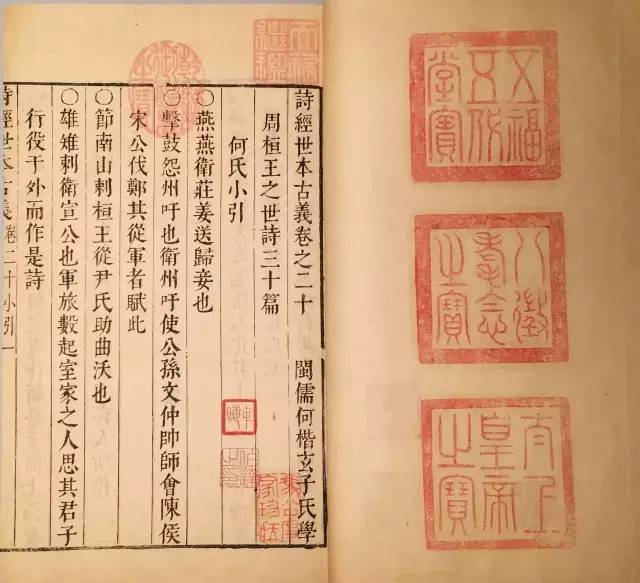 五福五代堂寶
八徵耄念之寶
太上皇帝之寶
天祿繼鑑
乾隆御覽之寶
詩經世本古義卷之二十
閩儒何楷玄子氏學
周桓王之世詩三十篇
何氏小引
〇燕燕衛莊姜送歸妾也
〇擊鼓怨州吁也衛州吁使公孫文仲帥師會陳侯
宋公伐鄭其從軍者賦此
〇節南山刺桓王從尹氏助曲沃也
〇雄雉刺衛宣公也軍旅數起室家之人思其君子
行役于外而作是詩
詩經世本古義 卷二十小引 一